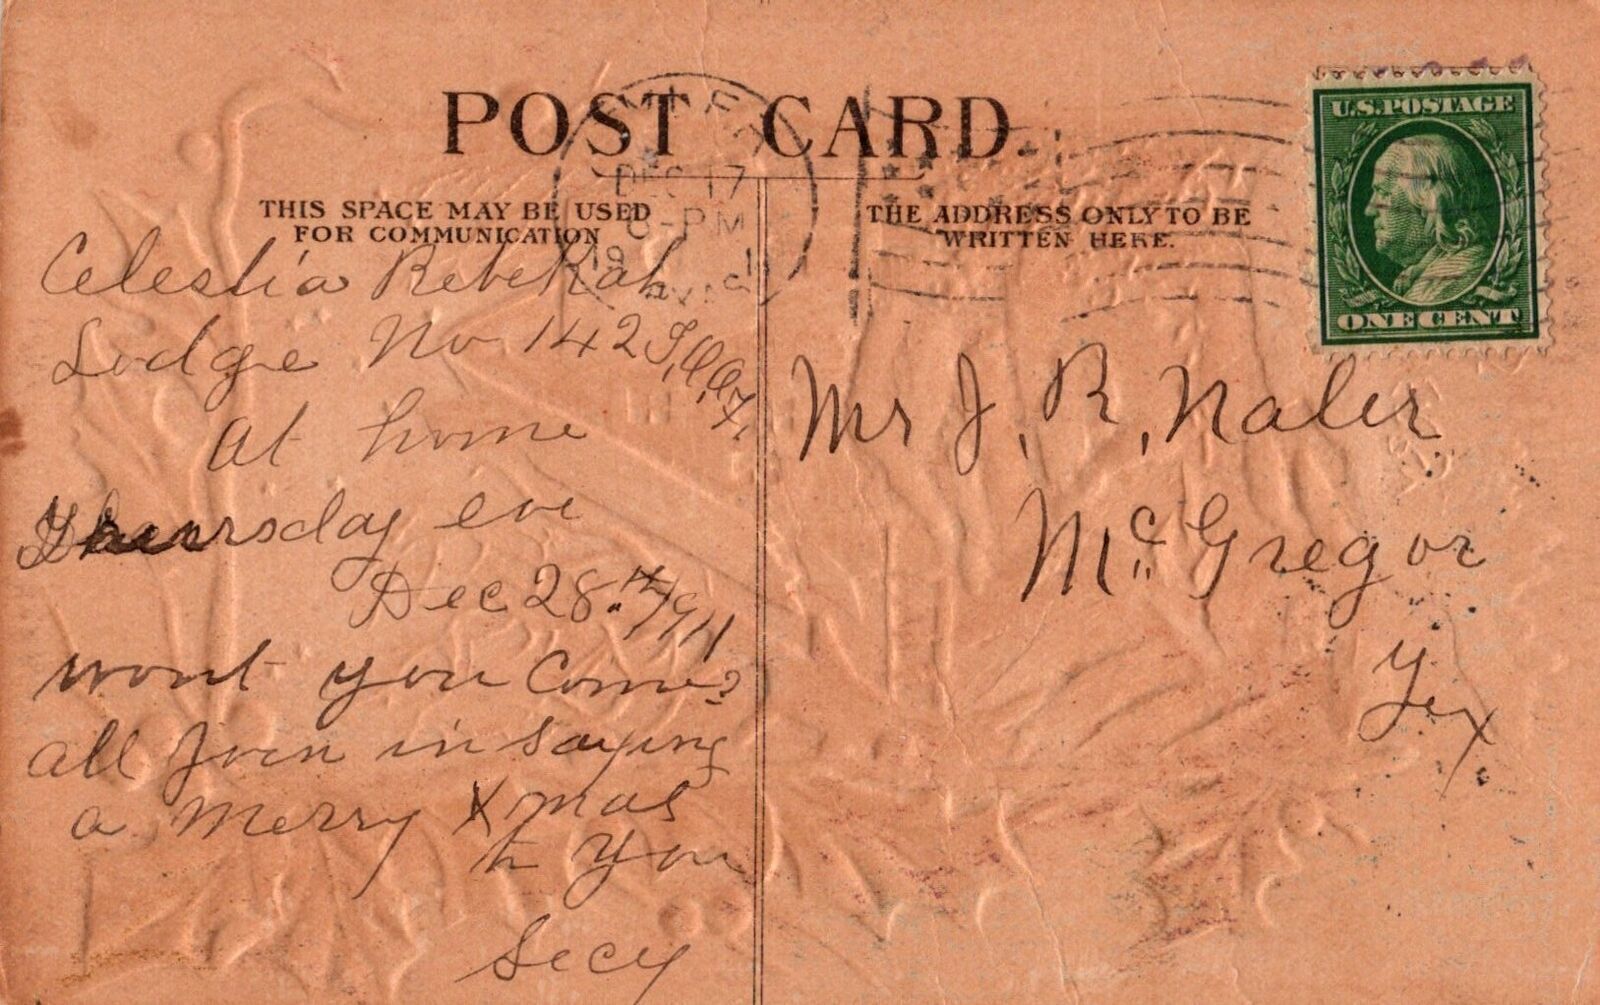 POST CARD
THIS SPACE MAY BE USED
FOR COMMUNICATION
THE ADDRESS ONLY TO BE
WRITTEN HERE.
DEC 17
-PM
19
U.S. POSTAGE
ONE CENT
Celestia Rebekah
Lodge No 142 I,O,O,F,
at home
Thursday eve
Dec 28.th/1911
wont you Come?
all Join in saying
a merry Xmas
to you
Secy
Mr J, R, Naler
McGregor
Tex